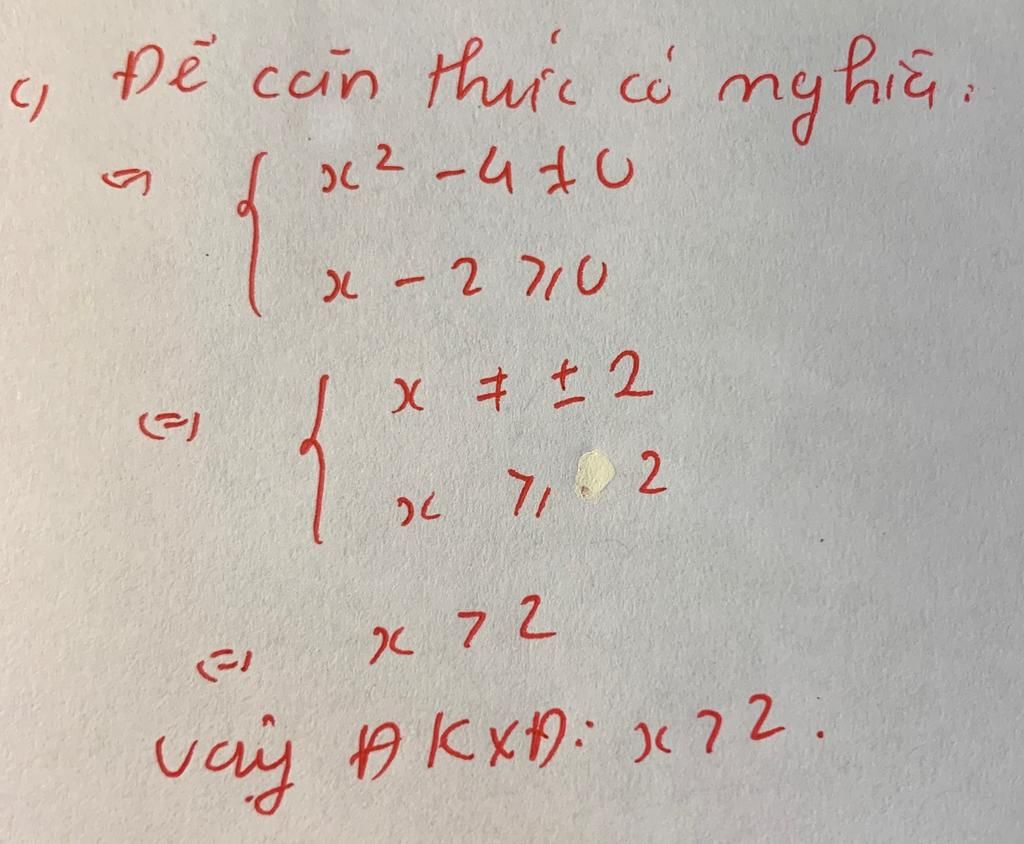 c) Để căn thức có nghĩa:
<=> { x² - 4 ≠ 0
x - 2 ≥ 0
<=> { x ≠ ± 2
x ≥ 2
<=> x > 2
Vậy ĐKXĐ: x > 2.